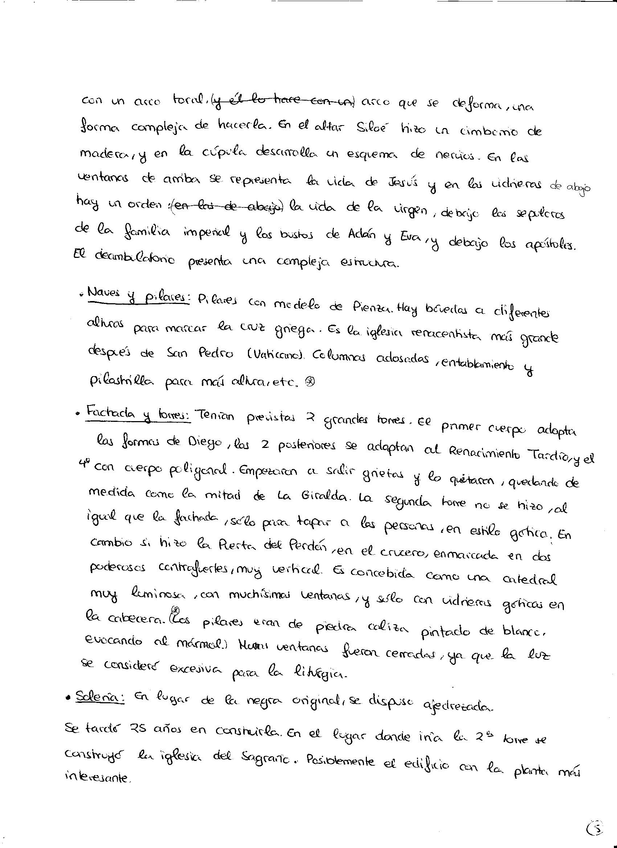 con un arco toral, (y él lo hace con un) arco que se deforma, una
forma compleja de hacerla. En el altar Siloé hizo un cimborrio de
madera, y en la cúpula desarrolla un esquema de nervios. En las
ventanas de arriba se representa la vida de Jesús y en las vidrieras de abajo
hay un orden: (en las de abajo) la vida de la virgen, debajo los sepulcros
de la familia imperial y los bustos de Adán y Eva, y debajo los apóstoles.
El deambulatorio presenta una compleja estructura.
• Naves y pilares: Pilares con modelo de Pienza. Hay bóvedas a diferentes
alturas para marcar la cruz griega. Es la iglesia renacentista más grande
después de San Pedro (Vaticano). Columnas adosadas, entablamiento y
pilastrilla para más altura, etc. ⊛
• Fachada y torres: Tenían previstas 2 grandes torres. El primer cuerpo adopta
las formas de Diego, los 2 posteriores se adaptan al Renacimiento Tardío, y el
4º con cuerpo poligonal. Empezaron a salir grietas y lo quitaron, quedando de
medida como la mitad de La Giralda. La segunda torre no se hizo, al
igual que la fachada, sólo para tapar a las personas, en estilo gótico. En
cambio si hizo la Puerta del Perdón, en el crucero, enmarcada en dos
poderosos contrafuertes, muy vertical. Es concebida como una catedral
muy luminosa, con muchísimas ventanas, y sólo con vidrieras góticas en
la cabecera. ⊛(Los pilares eran de piedra caliza pintado de blanco,
evocando al mármol.) ventanas fueron cerradas, ya que la luz
se consideró excesiva para la litúrgia.
• Solería: En lugar de la negra original, se dispuso ajedrezada.
Se tardó 25 años en construirla. En el lugar donde iría la 2ª torre se
construyó la iglesia del Sagrario. Posiblemente el edificio con la planta más
interesante.
5